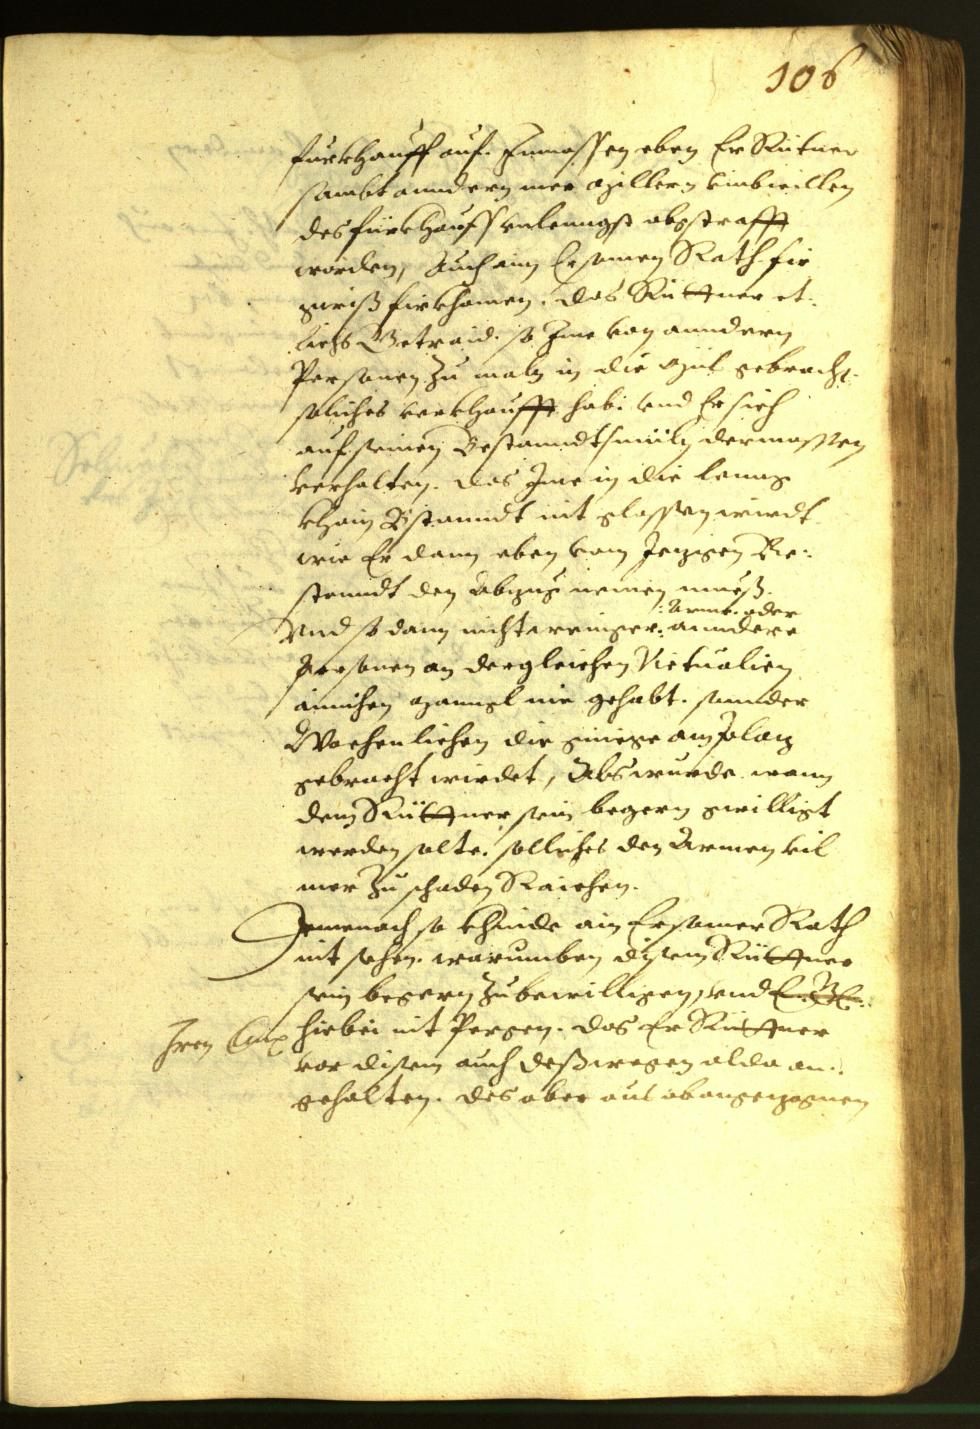 106
furkhauff auf. Inmassen eben Er Rütner
sambt anndern mer Millern umbwillen
des fürkhauffs unlenngst abgstrafft
worden, Auch ain Ersamen Rath fir
gwiß firkhomen. das Rüttner et-
lichs Getraid. so Ime von anndern
Personen zu maln in die Mül gebracht.
soliches verkhaufft hab. und Er sich
auf seinen Bestanndtsmüln dermassen
verhalten. das Ime in die lenng
khain Bstanndt nit glassen wirdt
wie Er dann eben vom Jezigen Be-
stanndt den Abzug nemen mueß.
:Arme. oder
Und so dann nichtweniger: anndere
Personen an dergleichen Victualien
ainichen Manngl nie gehabt. sonnder
Wochenlichen die gniege am Plaz
gebracht wirdet, Als wurde. wann
dem Rüttner sein begern gwilligt
werden solte. solliches den Armen vil
mer zu schaden Raichen.
Demnach so khinde ain Ersamer Rath
nit sehen. warumben disem Rüttner
sein begern zubewilligen, und E. G.
Iren
hiebei nit Pergen. das Er Rüttner
vor disem auch deßwegen alda an-
gehalten. des aber aus obangezognen